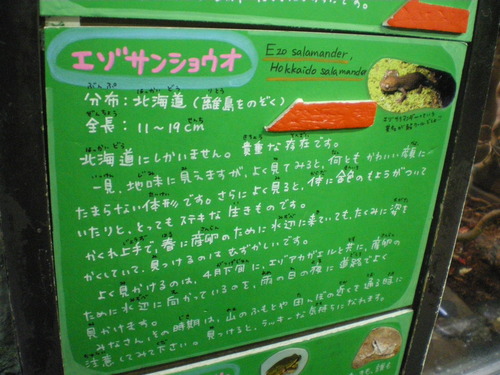 エゾサンショウオ
Ezo salamander,
Hokkaido salamander
分布：北海道（離島をのぞく）
全長：11～19cm
北海道にしかいません。貴重な存在です。
一見、地味に見えますが、よく見てみると、何ともかわいい顔に
たまらない体形です。さらによく見ると、体に金色のもようがついて
いたりと、とってもステキな生きものです。
かくれ上手で、春に産卵のために水辺に来ていても、たくみに姿を
かくしていて、見つけるのはむずかしいです。
よく見かけるのは、4月下旬に、エゾアカガエルと共に、産卵の
ために水辺に向かっているのを、雨の日の夜に道路でよく
見かけます。
みなさん、この時期は、山のふもとや田んぼの近くで通る時に
注意してみて下さい。見つけると、ラッキーな気持ちになれます。